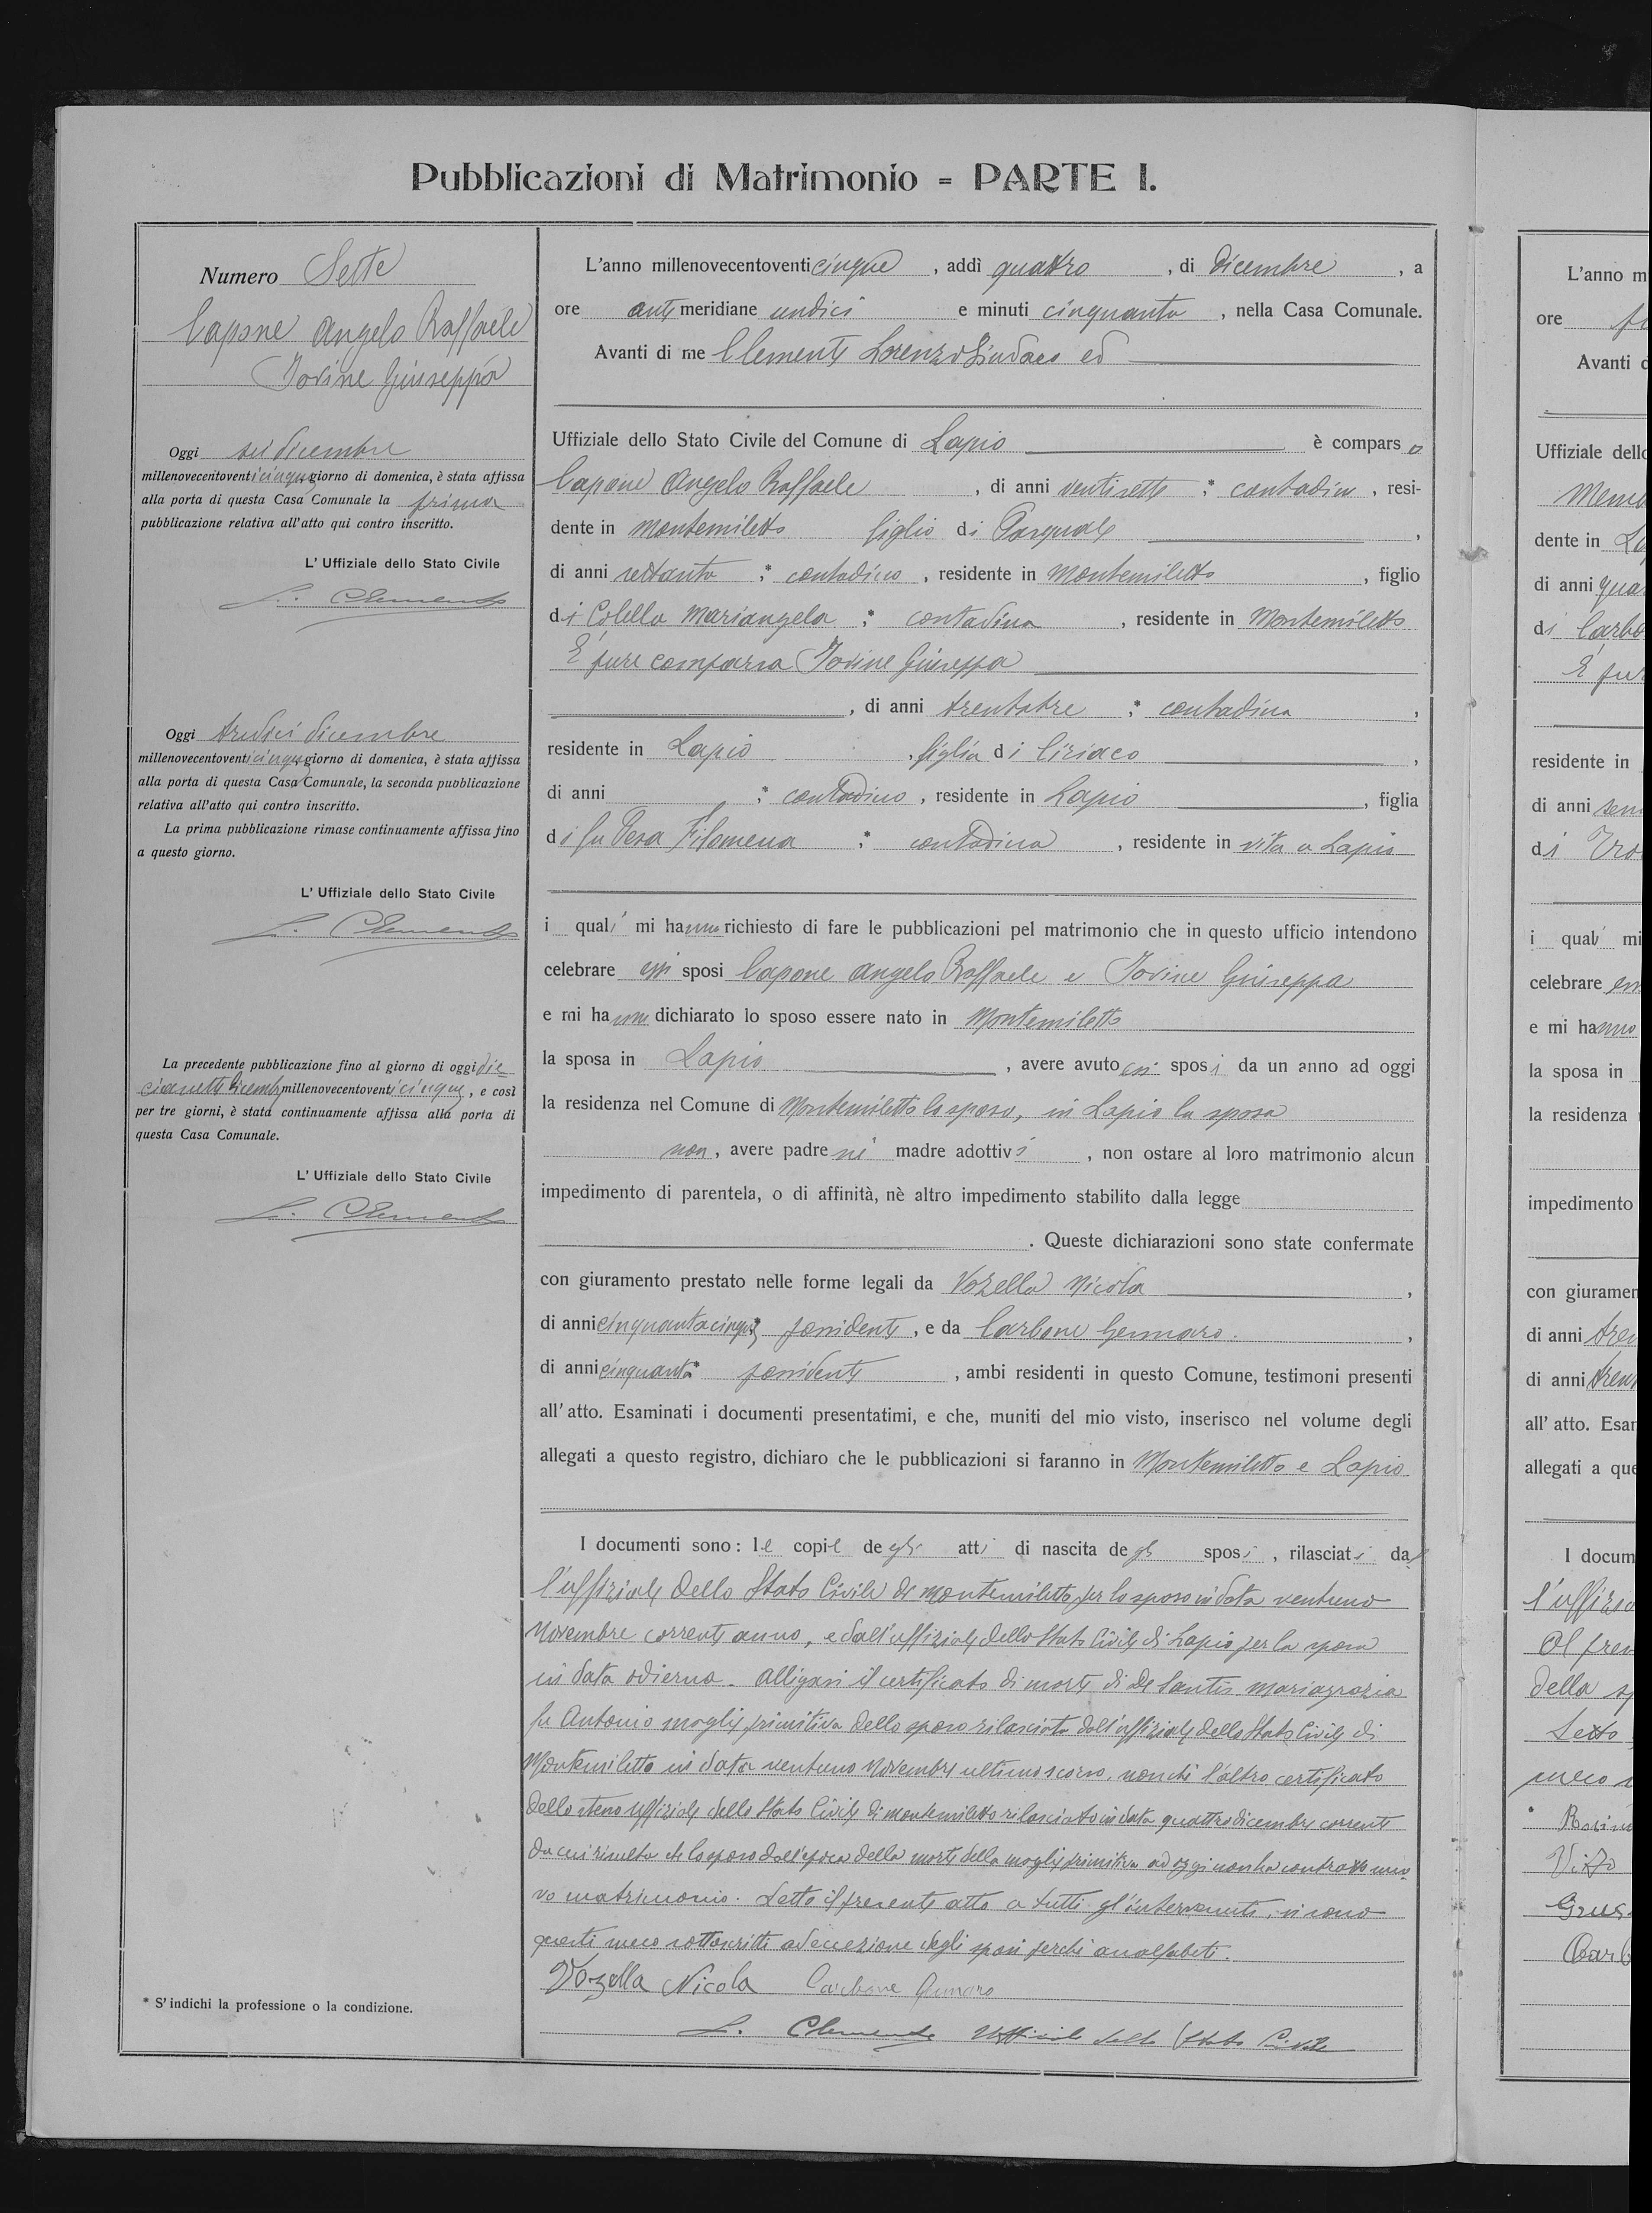 Pubblicazioni di Matrimonio = PARTE I.
Numero Sette
Capone Angelo Raffaele
Iovine Giuseppa
Oggi sei dicembre
millenovecentoventicinque giorno di domenica, è stata affissa
alla porta di questa Casa Comunale la prima
pubblicazione relativa all'atto qui contro inscritto.
L'Uffiziale dello Stato Civile
L. Clemente
Oggi tredici dicembre
millenovecentoventicinque giorno di domenica, è stata affissa
alla porta di questa Casa Comunale, la seconda pubblicazione
relativa all'atto qui contro inscritto.
La prima pubblicazione rimase continuamente affissa fino
a questo giorno.
L'Uffiziale dello Stato Civile
L. Clemente
La precedente pubblicazione fino al giorno di oggi die
cissette dicembre millenovecentoventicinque, e così
per tre giorni, è stata continuamente affissa alla porta di
questa Casa Comunale.
L'Uffiziale dello Stato Civile
L. Clemente
* S'indichi la professione o la condizione.
L'anno millenovecentoventicinque, addì quattro, di Dicembre, a
ore antimeridiane undici e minuti cinquanta, nella Casa Comunale.
Avanti di me Clemente Lorenzo Sindaco ed
Uffiziale dello Stato Civile del Comune di Lapio è comparso
Capone Angelo Raffaele, di anni ventisette * contadino, resi-
dente in Montemiletto figlio di Pasquale,
di anni settanta * contadino, residente in Montemiletto, figlio
di Colella Mariangela * contadina, residente in Montemiletto
È pure comparsa Iovine Giuseppa
, di anni trentatre * contadina,
residente in Lapio, figlia di Ciriaco,
di anni * contadino, residente in Lapio, figlia
di fu Pesa Filomena * contadina, residente in vita a Lapio
i quali mi hanno richiesto di fare le pubblicazioni pel matrimonio che in questo ufficio intendono
celebrare essi sposi Capone Angelo Raffaele e Iovine Giuseppa
e mi hanno dichiarato lo sposo essere nato in Montemiletto
la sposa in Lapio, avere avuto essi sposi da un anno ad oggi
la residenza nel Comune di Montemiletto lo sposo, in Lapio la sposa
non, avere padre nè madre adottivi, non ostare al loro matrimonio alcun
impedimento di parentela, o di affinità, nè altro impedimento stabilito dalla legge
. Queste dichiarazioni sono state confermate
con giuramento prestato nelle forme legali da Vozella Nicola,
di anni cinquantacinque * possidente, e da Carbone Gennaro.,
di anni cinquanta * possidente, ambi residenti in questo Comune, testimoni presenti
all'atto. Esaminati i documenti presentatimi, e che, muniti del mio visto, inserisco nel volume degli
allegati a questo registro, dichiaro che le pubblicazioni si faranno in Montemiletto e Lapio
I documenti sono: le copie degli atti di nascita degli sposi, rilasciati dal
l'uffiziale dello Stato Civile di Montemiletto per lo sposo in data ventuno
Novembre corrente anno, e dall'uffiziale dello Stato Civile di Lapio per la sposa
in data odierna. Alligasi il certificato di morte di De Santis Mariagrazia
fu Antonio moglie primitiva dello sposo rilasciato dall'uffiziale dello Stato Civile di
Montemiletto in data ventuno Novembre ultimo scorso, nonchè l'altro certificato
dello stesso Uffiziale dello Stato Civile di Montemiletto rilasciato in data quattro dicembre corrente
da cui risulta che lo sposo dall'epoca della morte della moglie primitiva ad oggi non ha contratto nuo
vo matrimonio. Letto il presente atto a tutti gl'intervenuti, si sono
questi meco sottoscritti ad eccezione degli sposi perchè analfabeti.
Vozella Nicola Carbone Gennaro
L. Clemente Uffiziale dello Stato Civile
L'anno m
ore
Avanti d
Uffiziale dello
dente in La
di anni qua
di Carbo
È pur
residente in
di anni
di
i quali mi
celebrare
e mi hanno
la sposa in
la residenza
impedimento
con giuramen
di anni tren
di anni tren
all'atto. Esar
allegati a que
I docum
l'uffizia
Al pres
della sp
Letto
meco
Vizzo
Carb